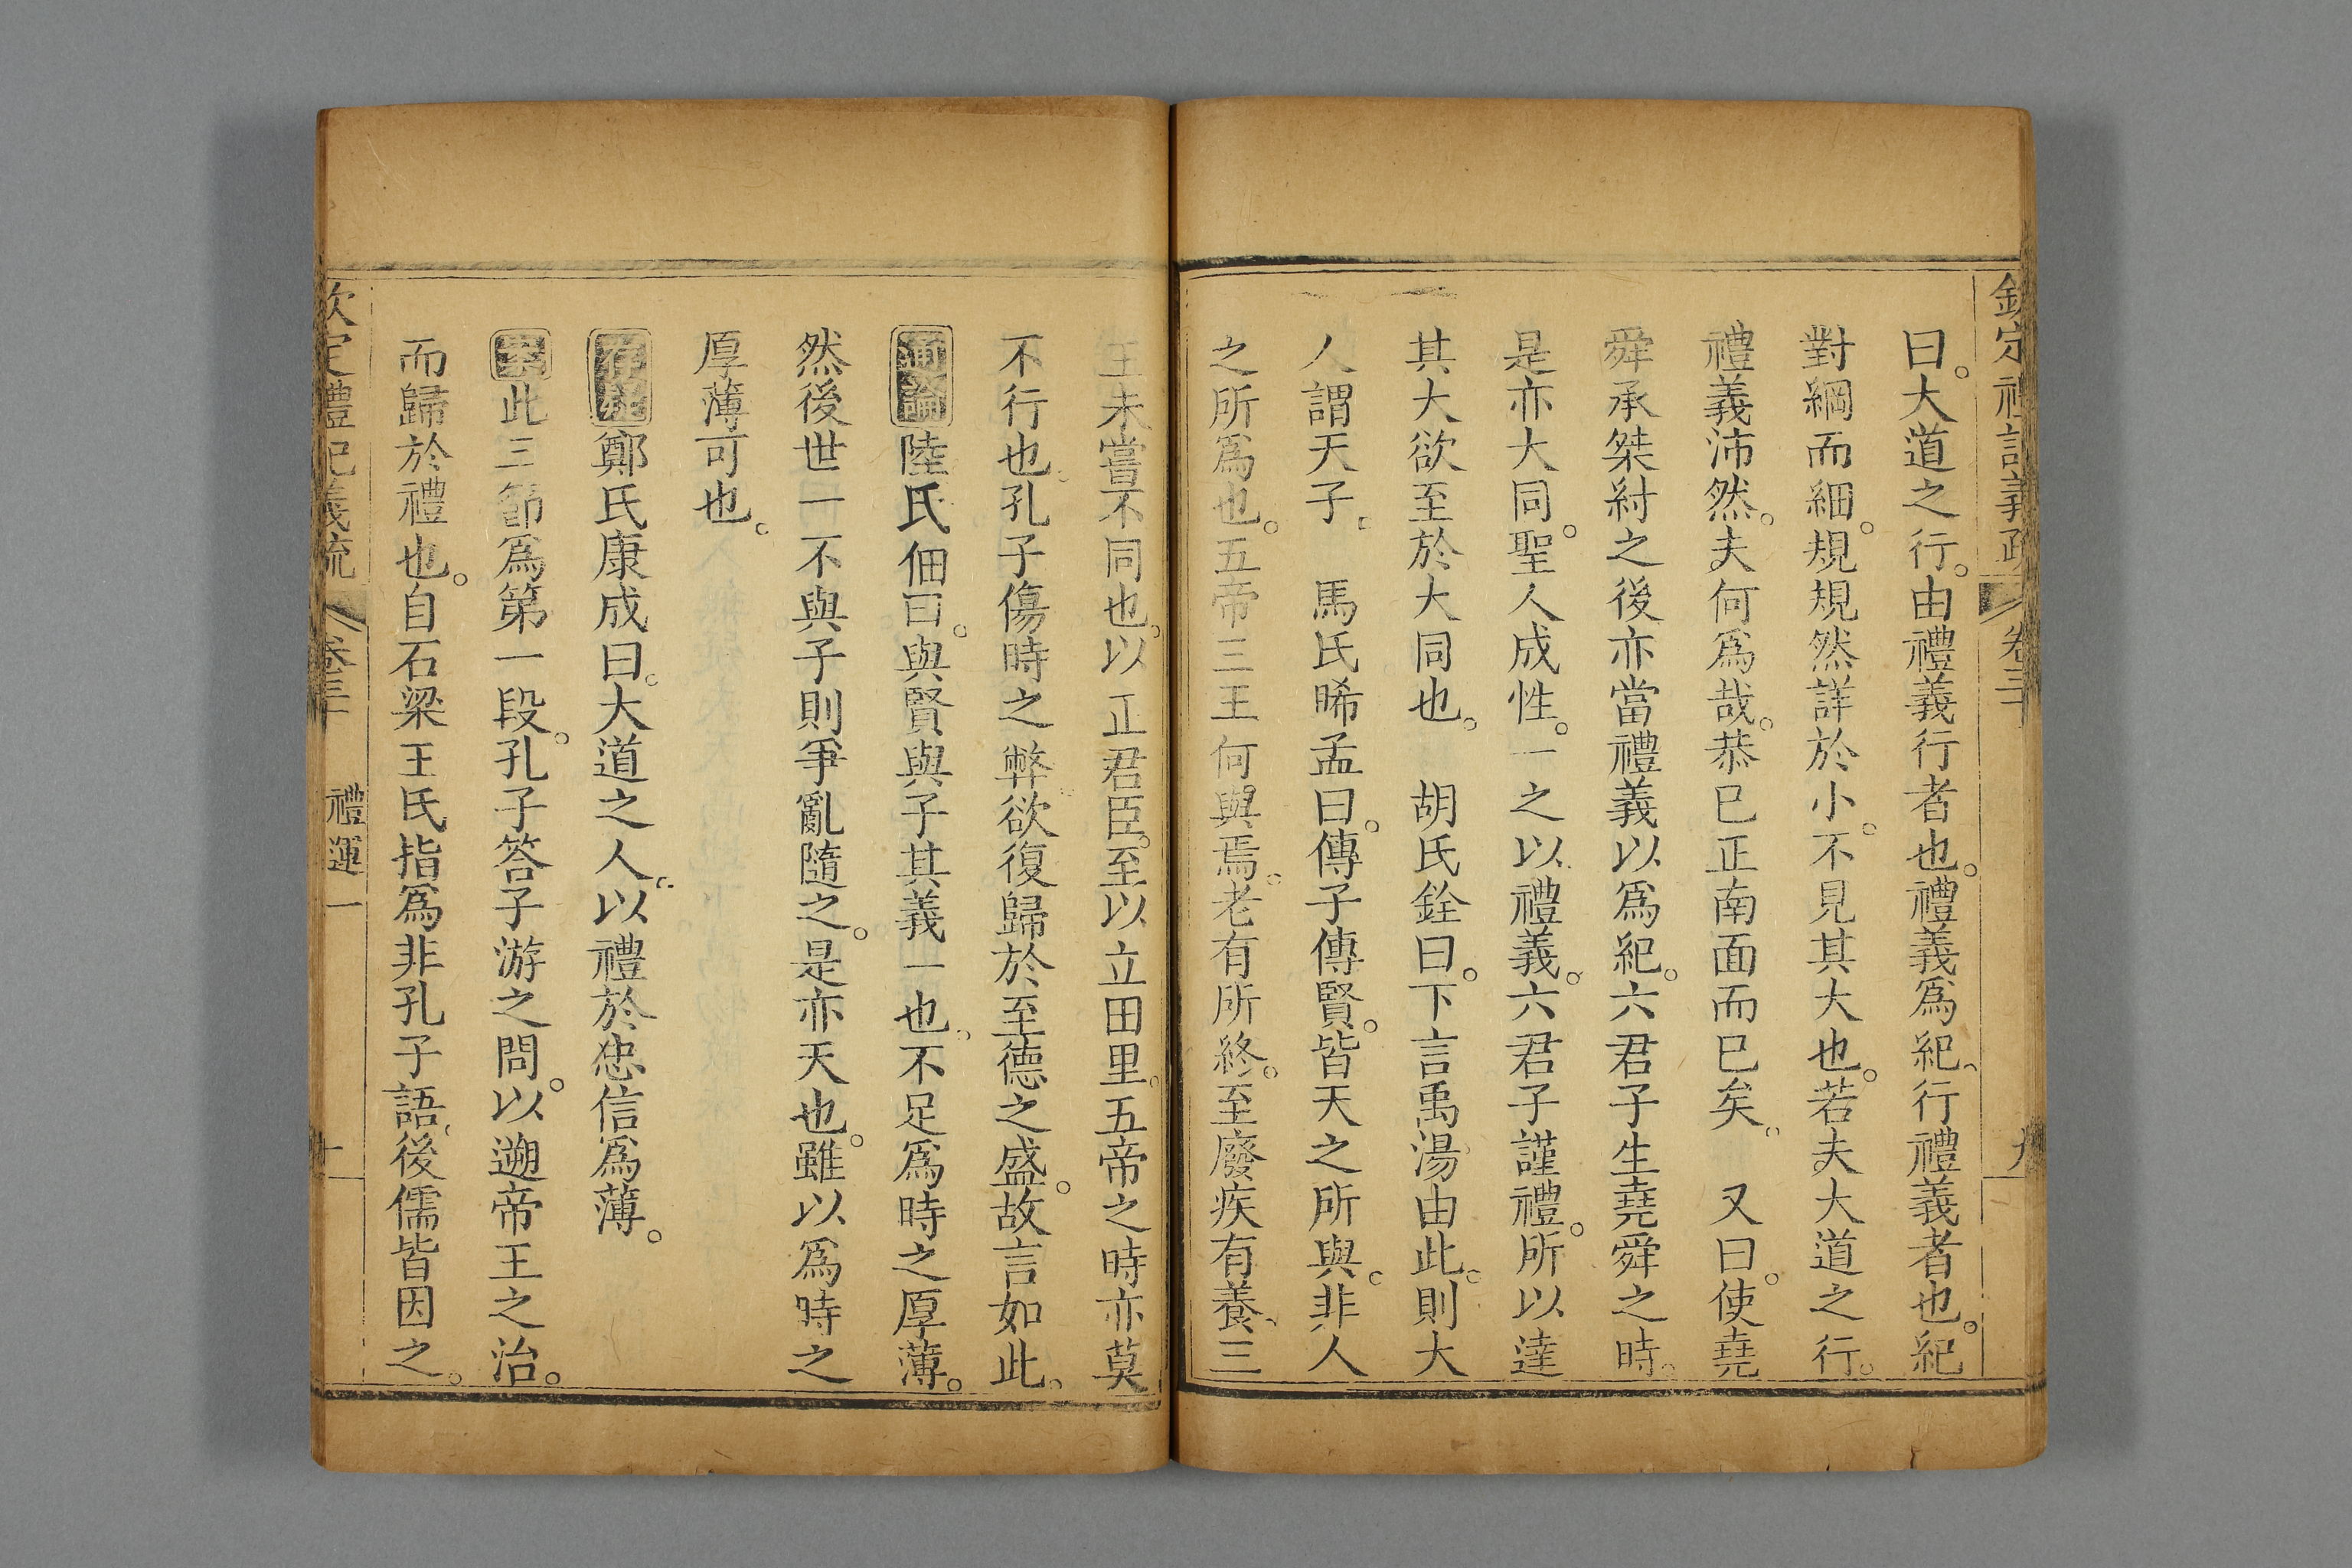 欽定禮記義疏 卷三 九
曰。大道之行。由禮義行者也。禮義爲紀、行禮義者也。紀
對綱而細。規規然詳於小。不見其大也。若夫大道之行。
禮義沛然。夫何爲哉。恭已正南面而已矣。　又曰。使堯
舜承桀紂之後亦當禮義以爲紀。六君子生堯舜之時。
是亦大同。聖人成性。一之以禮義。六君子謹禮。所以達
其大欲至於大同也。　胡氏銓曰。下言禹湯由此。則大
人謂天子。　馬氏晞孟曰。傳子傳賢。皆天之所與。非人
之所爲也。五帝三王何與焉。老有所終。至廢疾有養、三
王未嘗不同也。以正君臣。至以立田里。五帝之時亦莫
不行也。孔子傷時之弊。欲復歸於至德之盛。故言如此。
通論陸氏佃曰。與賢與子其義一也。不足爲時之厚薄。
然後世一不與子則爭亂隨之。是亦天也。雖以爲時之
厚薄可也。
存疑鄭氏康成曰。大道之人。以禮於忠信爲薄。
案此三節爲第一段。孔子答子游之問。以遡帝王之治。
而歸於禮也。自石梁王氏指爲非孔子語、後儒皆因之。
欽定禮記義疏 卷三十 禮運一